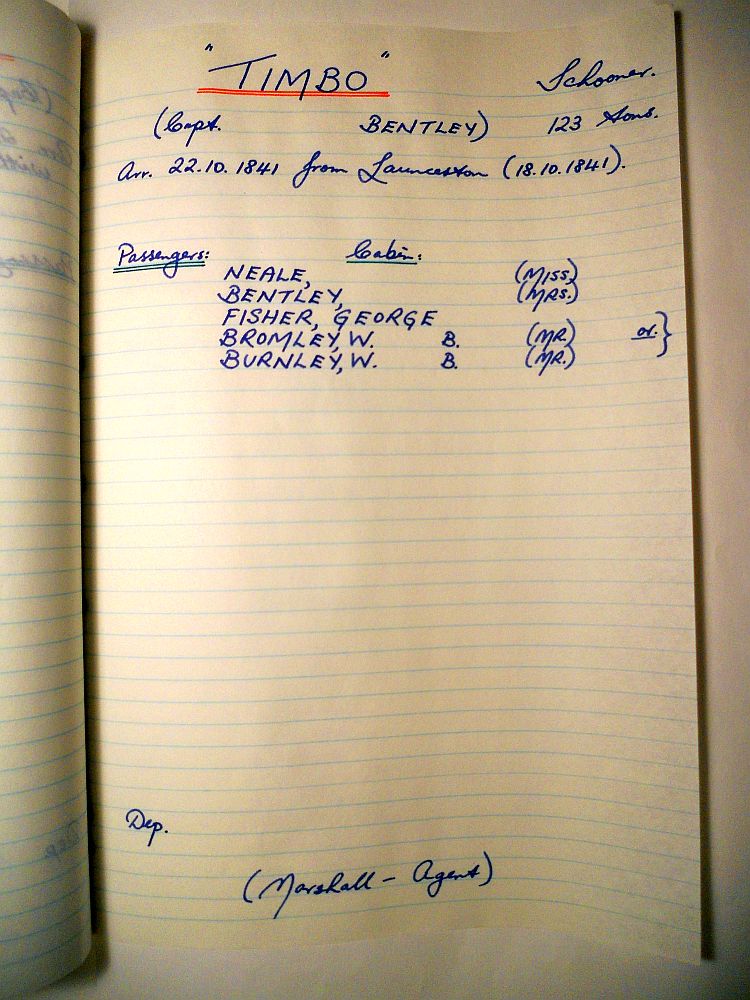 "TIMBO" Schooner.
(Capt. BENTLEY) 123 tons.
Arr. 22.10.1841 from Launceston (18.10.1841).
Passengers: Cabin:
NEALE, (MISS)
BENTLEY, (MRS.)
FISHER, GEORGE
BROMLEY, W. B. (MR.) or }
BURNLEY, W. B. (MR.)
Dep.
(Marshall - Agent)